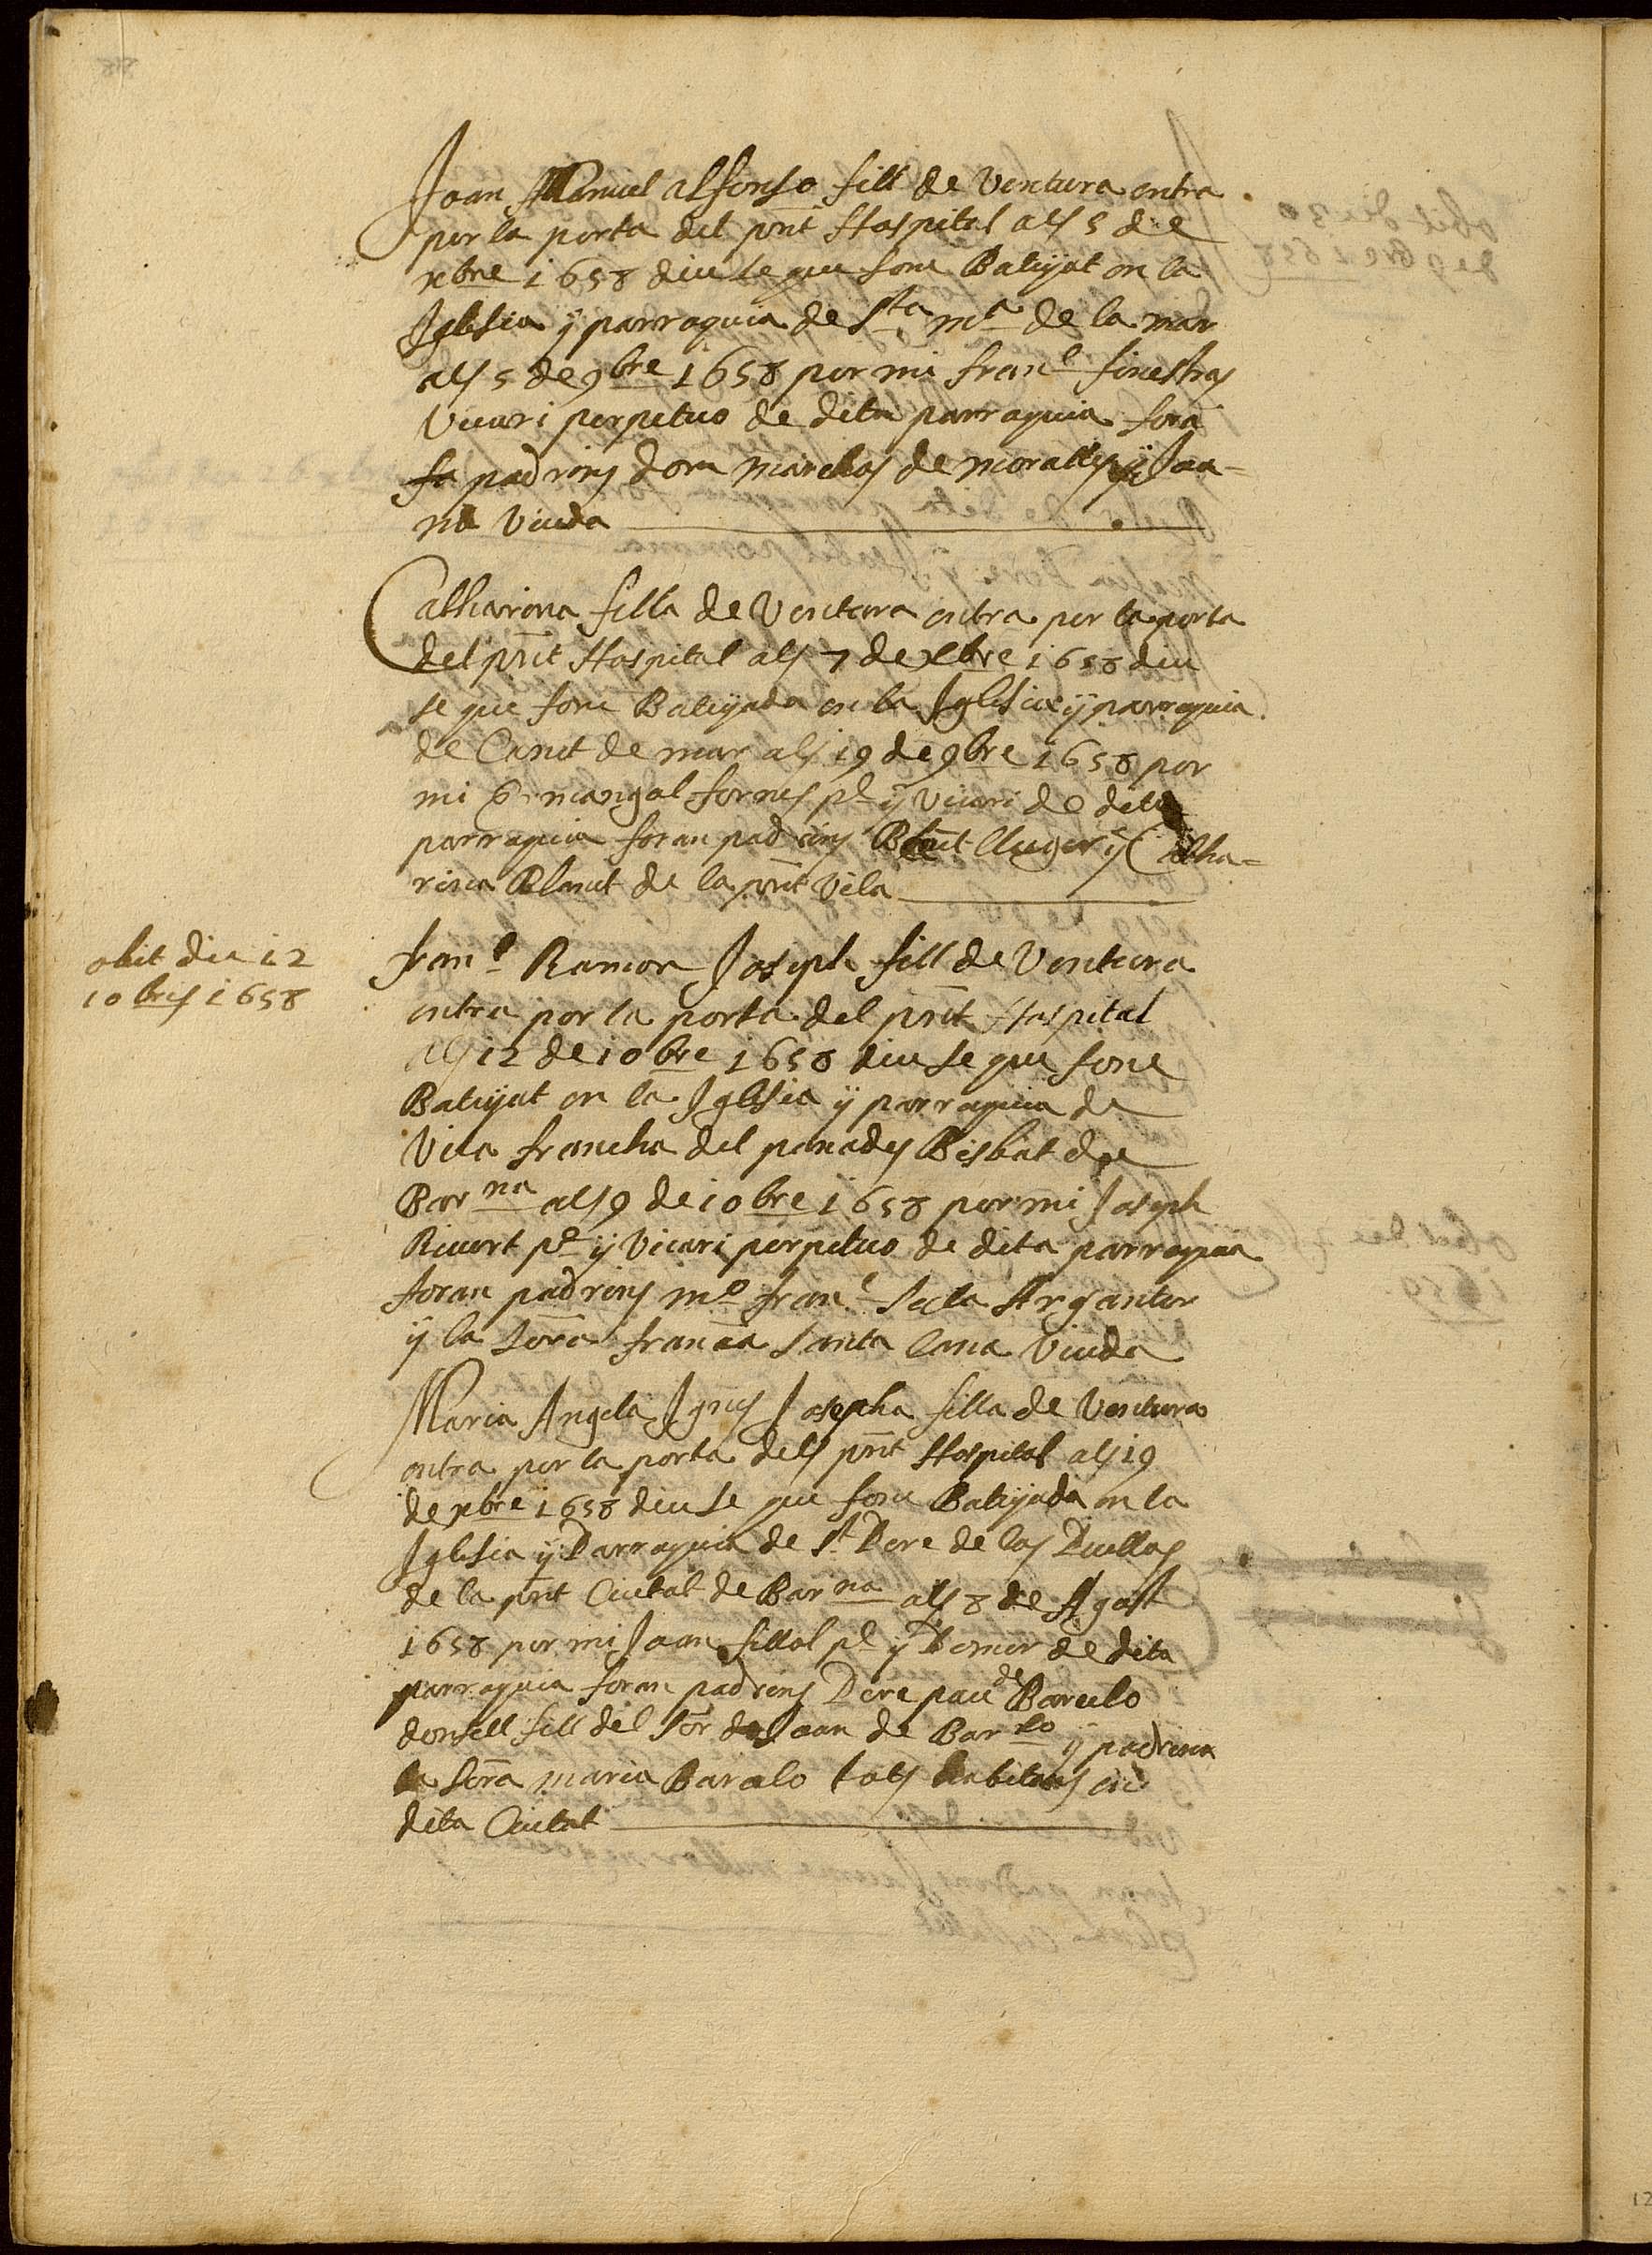 Joan Manuel alfonso fill de Ventura entra
per la porta del pnt Hospital als 5 de
xbre 1658 diu se que fonc Batejat en la
Iglesia ÿ parroquia de Sta ma de la mar
als 5 de 9bre 1658 per mi franc finestras
Vicari perpetuo de dita parroquia foran
padrins dom marchos de moralles ÿ Joa-
na Viuda
Catharina filla de Ventura entra per la porta
del pnt Hospital als 7 de xbre 1658 diu
se que fonc Batejada en la Iglesia ÿ parroquia
de Canet de mar als 19 de 9bre 1658 per
mi Armangol fornes pe ÿ Vicari de dita
parroquia foran padrins Bnet Lluger ÿ Catha-
rina Planet de la pnt Vila
obit die 12
10bris 1658
franc Ramon Joseph fill de Ventura
entra per la porta del pnt Hospital
als 12 de 10bre 1658 diu se que fonc
Batejat en la Iglesia ÿ parroquia de
Vila francha del panades Bisbat de
Barna als 9 de 10bre 1658 per mi Joseph
Ricart pe ÿ Vicari perpetuo de dita parroquia
foran padrins mo franc Sacla Arganter
ÿ la Sora franca Santa Cana Viuda
Maria Angela Ignes Josepha filla de Ventura
entra per la porta dels pnt Hospital als 19
de xbre 1658 diu se que fonc Batejada en la
Iglesia ÿ Parroquia de St Pere de las Puellas
de la pnt Ciutat de Barna als 8 de Agost
1658 per mi Joan fillol pe ÿ Domer de dita
parroquia foran padrins Pere pau de Barcelo
donsell fill del Sor Joan de Barlo ÿ padrina
la Sora maria Barcelo tots habitans en
dita Ciutat